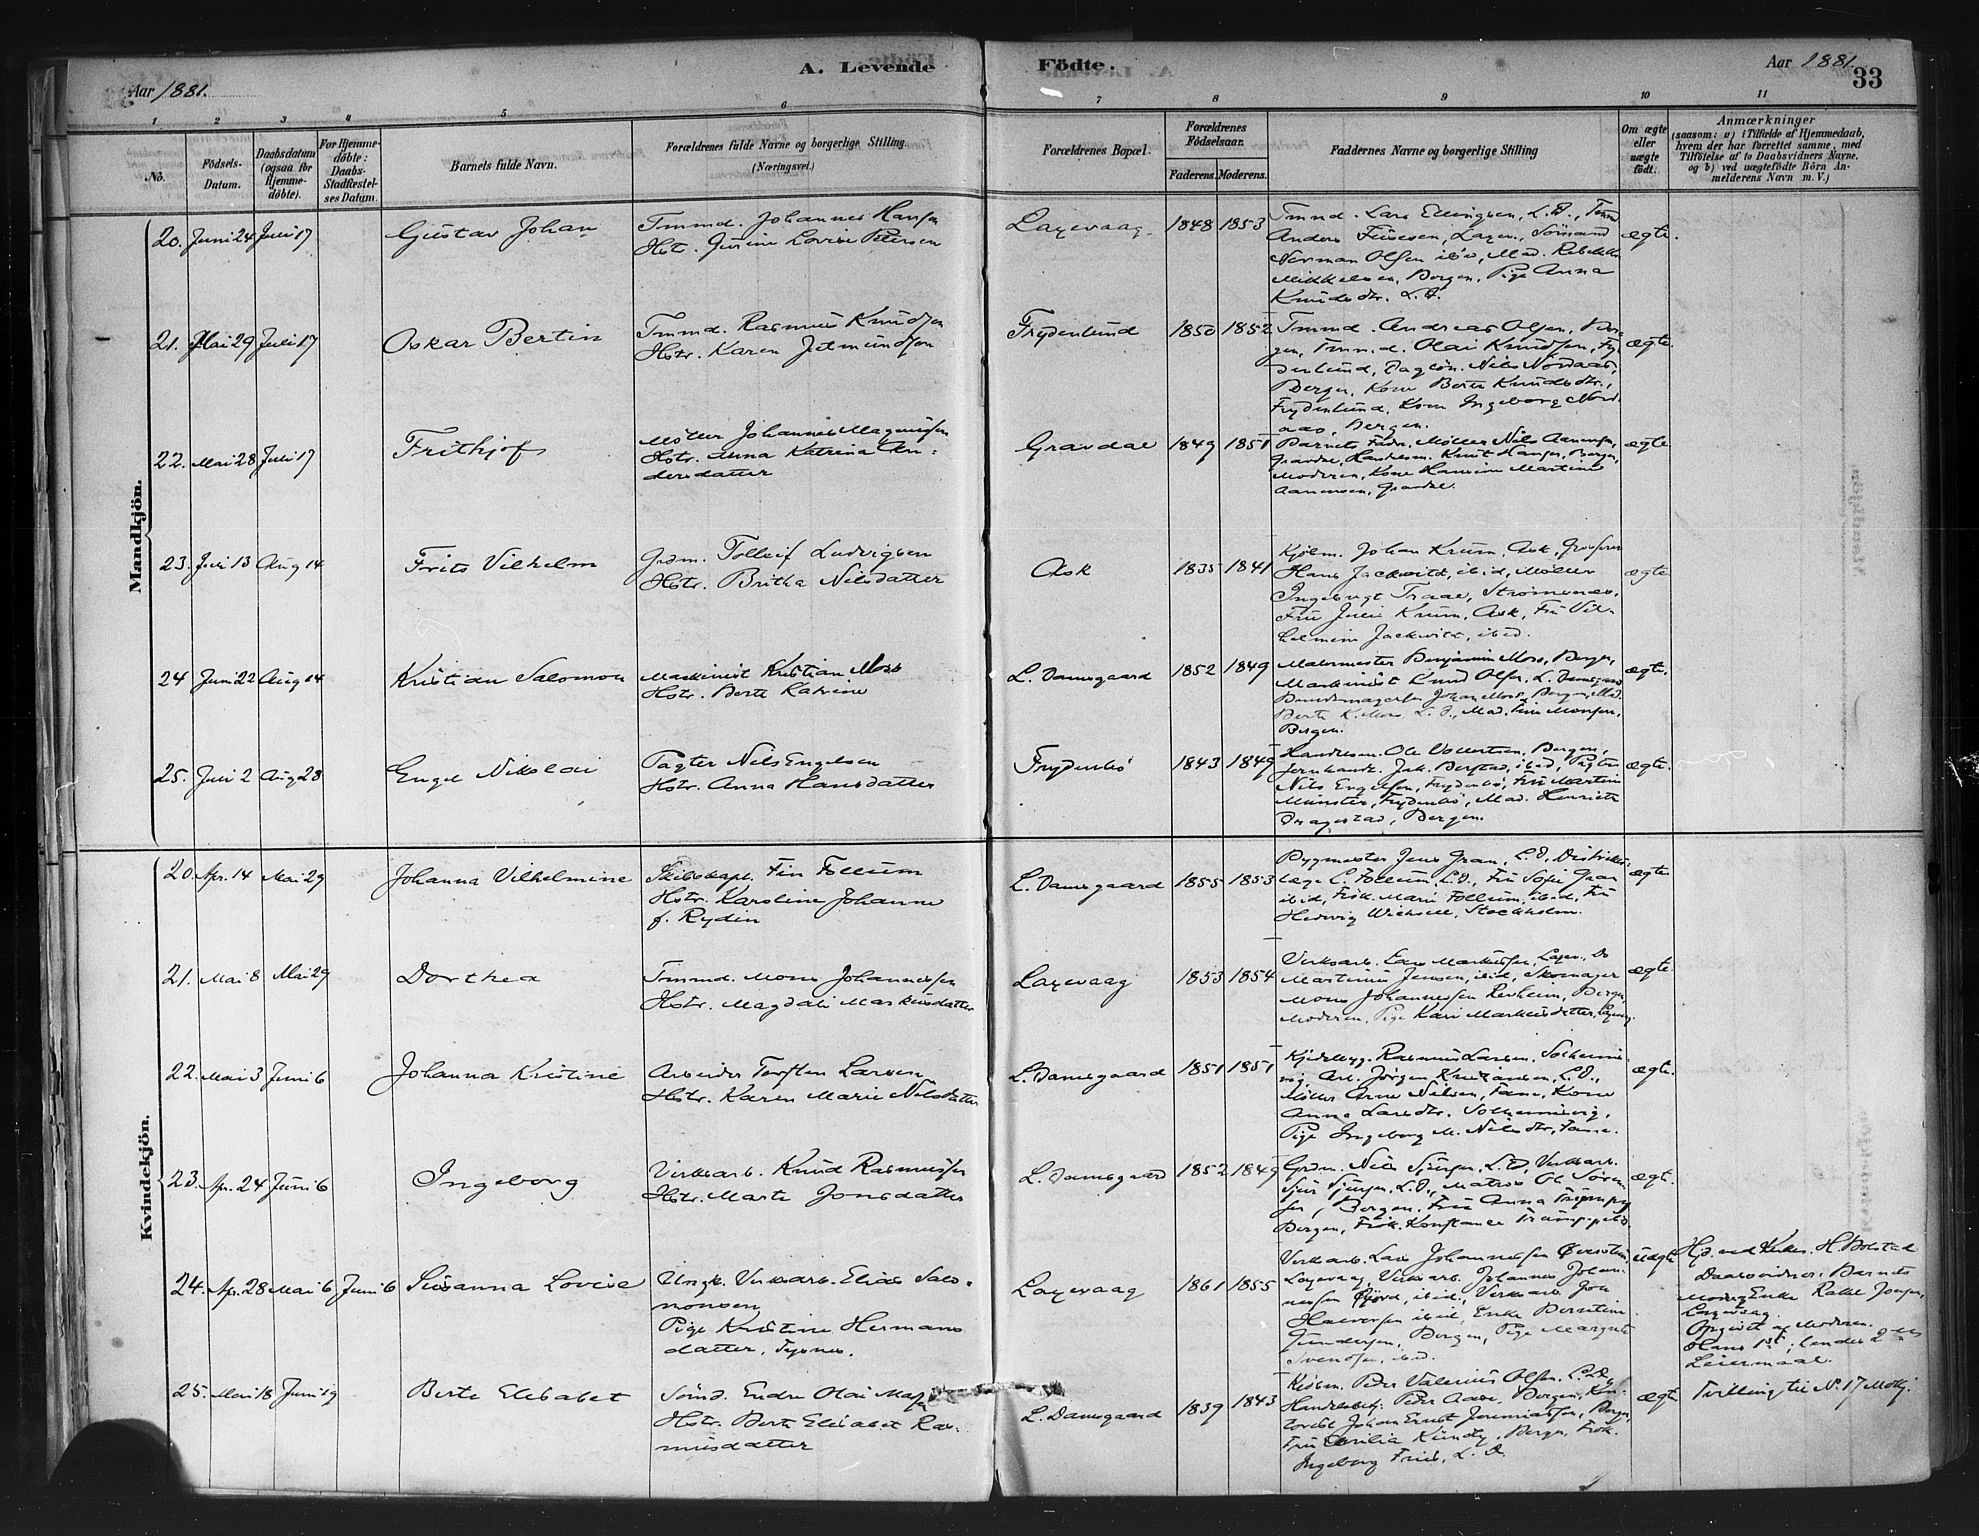 A. Levende
Födte.
Aar 1881.
Aar 1881.
33
1 2 3 4 5 6 7 8 9 10 11
No.
Födsels-
Datum.
Daabsdatum
(ogsaa for
Hjemme-
döbte).
For Hjemme-
döbte:
Daabs-
Stadfæstel-
ses Datum.
Barnets fulde Navn.
Forældrenes fulde Navne og borgerlige Stilling
(Næringsvei.)
Forældrenes Bopæl.
Forældrenes
Födselsaar.
Faderens. Moderens.
Faddernes Navne og borgerlige Stilling
Om ægte
eller
uægte
födt.
Anmærkninger
(saasom: a) i Tilfælde af Hjemmedaab,
hvem der har forrettet samme, med
Tilföielse af to Daabsvidners Navne.
og b) ved uægtefödte Börn An-
melderens Navn m. V.)
Mandkjön.
20. Juni 24 Juli 17 Gustav Johan
Tmmd. Johannes Hansen
Hstr. Gurine Lovise Petersen
Laxevaag 1848 1853
Tmmd. Lars Ellingsen, L.D., Tmm
Anders Laxev., Sömand
Olsen ibid, Mad. Rebekka
Mikkelsen, Bergen, Pige Anna
Knudsdtr. L.D.
ægte.
21. Mai 29 Juli 17 Oskar Bertin
Tmmd. Rasmus Knudsen
Hstr. Karen Jetmundsen
Frydenlund 1850 1852
Tmmd. Andreas Olsen, Ber-
gen, Tmmd. Olai Knudsen, Fry-
denlund, Dagløn. Nils Nordaas,
Bergen, Kone Berte Knudsdtr.,
Frydenlund, Kone Ingeborg Nord-
aas, Bergen.
ægte.
22. Mai 28 Juli 17 Frithjof
Møller Johannes Magnussen
Hstr. Anna Katrina An-
dersdatter
Gravdal 1849 1851
Barnets Fader, Møller Nils Aanensen,
Gravdal, Handelsm. Knut Hansen, Bergen,
Moderen, Kone Martine
Aanensen, Gravdal.
ægte
23. Juli 13 Aug 14 Frits Vilhelm
Grdm. Tolleif Ludvigsen
Hstr. Britha Nilsdatter
Ask 1835 1841
Kjøbm. Johan Krum, Ask, Grosserer
Hans Jackwitz, ibid, Møller
Ingebrigt Traae, Strømsnes,
Fru Julie Krum, Ask, Fru Vil-
helmine Jackwitz, ibid.
ægte
24 Juni 22 Aug 14 Kristian Salomon
Maskinist Kristian Moss
Hstr. Berte Katrine
L. Damsgaard 1852 1849
Malermester Benjamin Moss, Bergen,
Maskinist Knud Olsen, L. Damsgaard
Johan Moss, Bergen, Mad.
Berte K. Moss L.D., Mad. Monsen,
Bergen.
ægte.
25. Juli 2 Aug 28 Engel Nikolai
Pagter Nils Engelsen
Hstr. Anna Hansdatter
Frydenbö 1843 1849
Handelsm. Ole Bergen,
Jernhandl. Jak. ibid, Pagter
Nils Engelsen, Frydenbö, Fru Martine
Münster, Frydenbö, Mad. Henriette
Dragestad, Bergen.
ægte.
Kvindekjön.
20. Apr. 14 Mai 29 Johanna Vilhelmine
Skibskapt. Fin Follum
Hstr. Karoline Johanne
f. Rydin
L. Damsgaard 1855 1853
Bygmester Jens Gran, L.D, Distrikts-
læge L. Follum, L.D., Fru Sofie Gran
ibid, Frøk. Marie Follum, ibid, Fru
Hedvig Wicksell, Stockholm.
ægte
21. Mai 8 Mai 29 Dorthea
Tmmd. Mons Johannessen
Hstr. Magdali Markusdatter
Laxevaag 1853 1854
Verksarb. Markussen, Laxev., Do
Martinus Jensen, ibid, Skomager
Mons Johannessen Bergen,
Moderen, Pige Kari Markusdatter, Laxevaag.
ægte.
22. Mai 3 Juni 6 Johanna Kristine
Arbeider Torsten Larsen
Hstr. Karen Marie Nilsdatter
L. Damsgaard 1851 1851
Kjedelbyg. Rasmus Larsen, Solheims-
vig, Arb. Jörgen Kristiansen, L.D.,
Møller Arne Nilsen, Fane, Kone
Anna Larsdtr. Solheimsvig,
Pige Ingeborg M. Nilsdtr, Fane.
ægte.
23. Apr. 24 Juni 6 Ingeborg
Verksarb. Knud Rasmussen
Hstr. Marte Jonsdatter
L. Damsgaard 1852 1849
Grdm. Nils Sjursen, L.D, Verksarb.
Sjur Sjursen, L.D., Matros Ole Søren-
sen, Bergen. Fru Anna
Bergen, Frøk. Konstance
ægte.
24. Apr. 28 Mai 6 Juni 6 Susanna Lovise
Ungk. Verksarb. Elias Salo-
monsen
Pige Kristine Hermans
datter, Tysnes.
Laxevaag 1861 1855
Verksarb. Lars Johannessen
Laxevaag, Verksarb. Johannes Johan-
nessen ibid, Verksarb. Jon
Halvorsen ibid, Enke Berntine
Gundersen, Bergen, Pige Margrete
Svendsen, ibid.
uægte
Hjd. ved Kirkes. H. Bolstad
Daabsvidner: Barnets
Moder, Enke Rakel Jonsen,
Laxevaag
Opgivet af Moderen.
Hans 1ste, hendes 2det
Leiermaal.
25. Mai 18 Juni 19 Berte Elisabet
Sømd. Endre Olai
Hstr. Berte Elisabet Ras-
musdatter
L. Damsgaard 1839 1843
Kjøbm. Peder Valerius Olsen, L.D,
Handelsbetj. Peder Aase, Bergen, Kon-
torist Johan Ernst Jeremiassen, Bergen,
Fru Cecilia Kundy, Bergen, Frøk.
Ingeborg Friis, L.D.
ægte
Tvilling til No. 17 Mdkj.